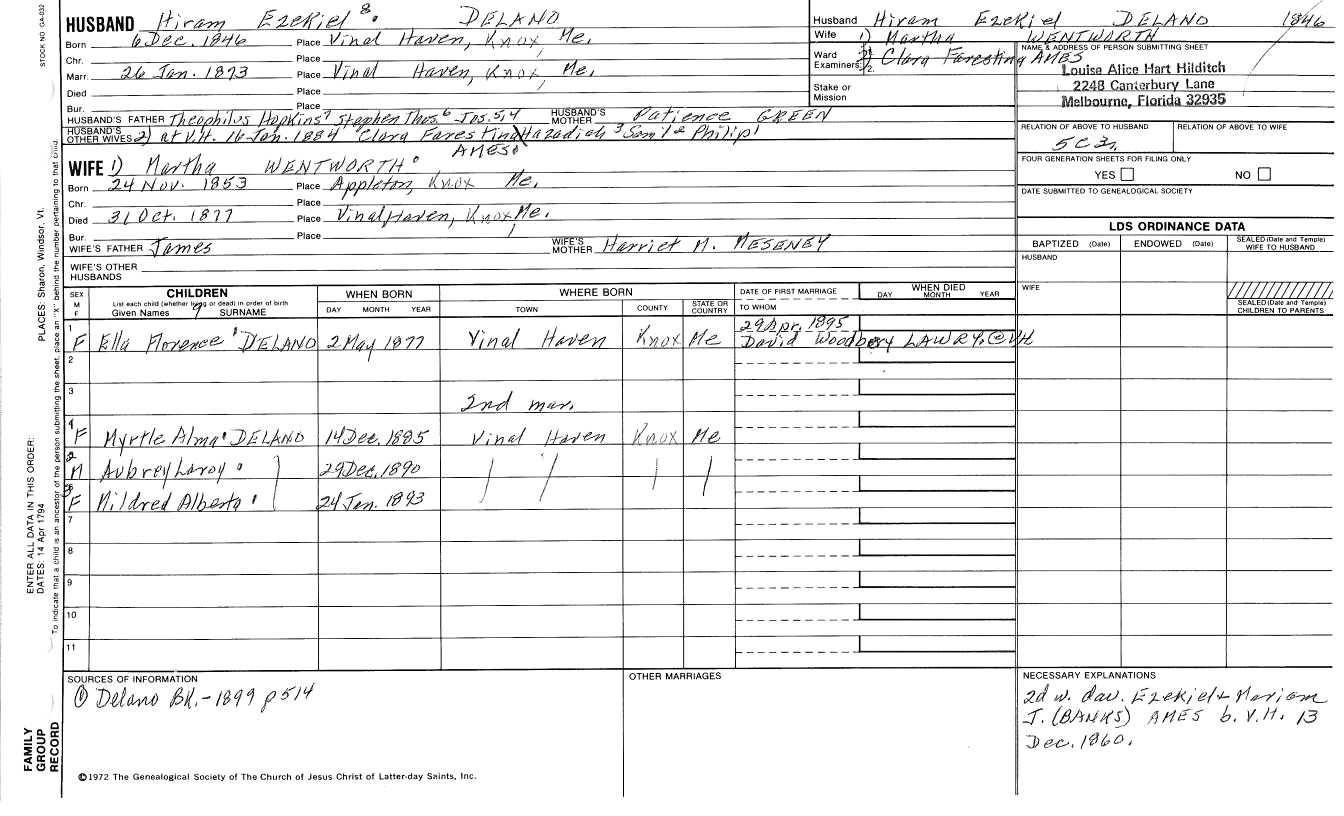 STOCK NO. GA-032
PLACES: Sharon, Windsor, Vt.
ENTER ALL DATA IN THIS ORDER:
DATES: 14 Apr 1794
To indicate that a child is an ancestor of the person submitting the sheet, place an "X" behind the number pertaining to that child.
FAMILY
GROUP
RECORD
HUSBAND Hiram Ezekiel 8. DELANO
Born 6 Dec. 1846 Place Vinal Haven, Knox, Me.
Chr. Place
Marr. 26 Jan. 1873 Place Vinal Haven, Knox, Me.
Died Place
Bur. Place
HUSBAND'S FATHER Theophilus Hopkins 7 Stephen Thos. 6 Jos. 5,4 HUSBAND'S MOTHER Patience GREEN
HUSBAND'S OTHER WIVES 2) at V.H. 16 Jan. 1884 Clara Faresting Hazadiah 3 2 Philip 1
AMES
WIFE 1) Martha WENTWORTH
Born 24 Nov. 1853 Place Appleton, Knox Me.
Chr. Place
Died 31 Oct. 1877 Place Vinal Haven, Knox Me.
Bur. Place
WIFE'S FATHER James WIFE'S MOTHER Harriet M. MESENEY
WIFE'S OTHER HUSBANDS
Husband Hiram Ezekiel DELANO 1846
Wife 1) Martha WENTWORTH
Ward Examiners: 1. 2. Clara Faresting AMES
Stake or Mission
NAME & ADDRESS OF PERSON SUBMITTING SHEET
Louise Alice Hart Hilditch
2248 Canterbury Lane
Melbourne, Florida 32935
RELATION OF ABOVE TO HUSBAND RELATION OF ABOVE TO WIFE
FOUR GENERATION SHEETS FOR FILING ONLY
YES NO
DATE SUBMITTED TO GENEALOGICAL SOCIETY
LDS ORDINANCE DATA
BAPTIZED (Date) ENDOWED (Date) SEALED (Date and Temple) WIFE TO HUSBAND
HUSBAND
WIFE
SEALED (Date and Temple) CHILDREN TO PARENTS
SEX M F CHILDREN WHEN BORN WHERE BORN DATE OF FIRST MARRIAGE WHEN DIED
List each child (whether living or dead) in order of birth
Given Names 9 SURNAME DAY MONTH YEAR TOWN COUNTY STATE OR COUNTRY TO WHOM DAY MONTH YEAR
1 29 Apr. 1895
F Ella Florence DELANO 2 May 1877 Vinal Haven Knox Me David Woodbery LAWRY, @ VH
2
3 2nd mar.
1 F Myrtle Alma DELANO 14 Dec. 1885 Vinal Haven Knox Me
2 M Aubrey Laroy 29 Dec. 1890
3 F Mildred Alberta 24 Jan. 1893
7
8
9
10
11
SOURCES OF INFORMATION
① Delano BK. - 1899 p 514
OTHER MARRIAGES
NECESSARY EXPLANATIONS
2d w. dau. Ezekiel & Mariam
J. (BANKS) AMES b. V.H. 13
Dec. 1860.
©1972 The Genealogical Society of The Church of Jesus Christ of Latter-day Saints, Inc.